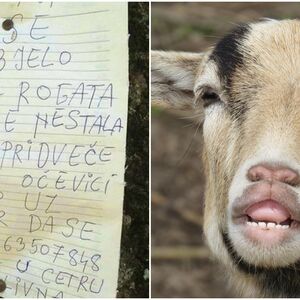 SE
BJELO
ROGATA
E NESTALA
PRIDVEČE
OĆEVICI
UZ
DA SE
63507848
U CETRU
LIVNA